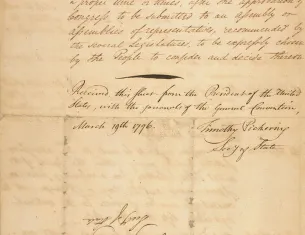 a proper time or times, after the approbation of
Congress, to be submitted to an assembly or
assemblies of representatives, recommended by
the several legislatures, to be expressly chosen
by the People to consider and decide thereon
Received this sheet from the President of the United
States, with the journals of the General Convention,
March 19th 1796. Timothy Pickering
Secy of State